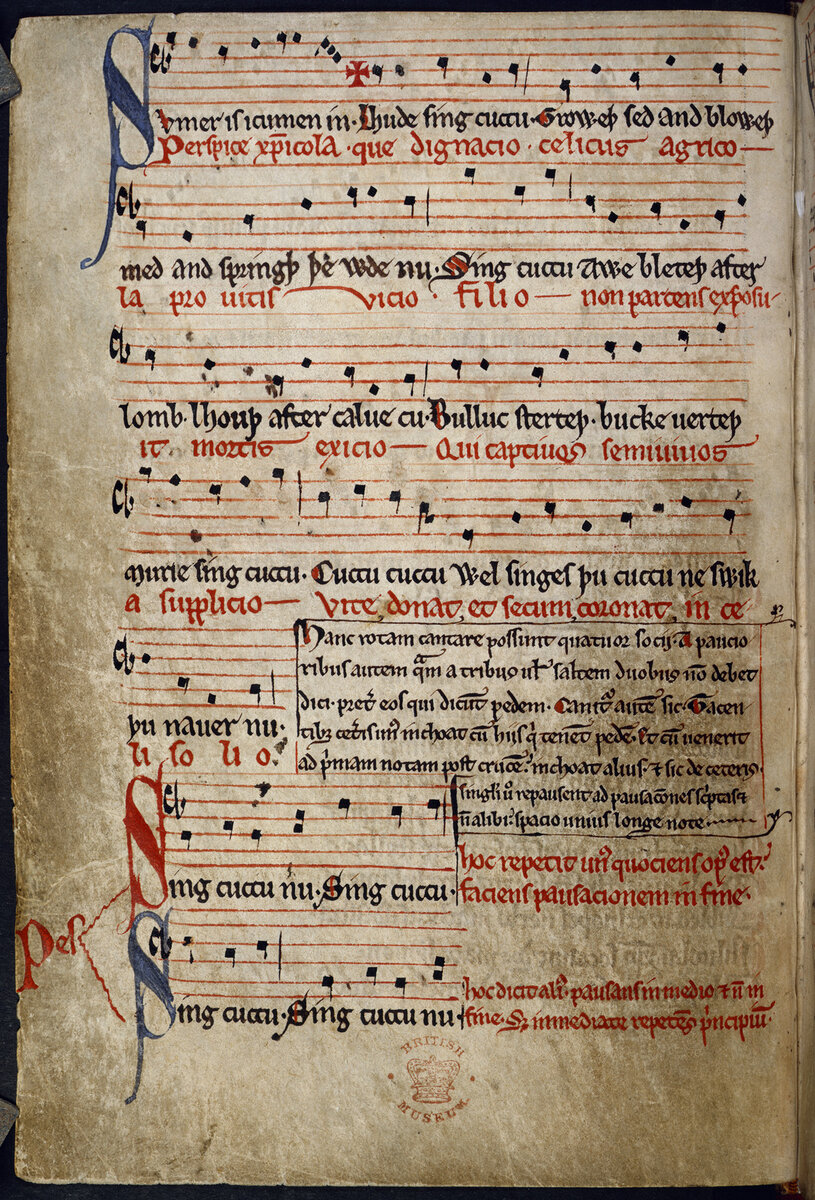 Sumer is icumen in· Lhude sing cuccu· Groweþ sed and bloweþ
Perspice xp̄icola· que dignacio· celicus agrico
med and springþ þe wde nu· Sing cuccu Awe bleteþ after
la pro uitis vicio· filio non parcens exposu
lomb· lhouþ after calue cu· Bulluc sterteþ· bucke uerteþ
it mortis exicio Qui captiuos semiuiuos
murie sing cuccu· Cuccu cuccu Wel singes þu cuccu ne swik
a supplicio Vite donat, et secum coronat, in ce
þu nauer nu·
li so li o.
Hanc rotam cantare possunt quatuor socij· A paucio
ribus autem quā a tribus ul̄ saltem duobus nō debet
dici· pret̄ eos qui dicūt pedem· Canitꝰ autē sic· Tacen
tibꝫ cet̄is unꝰ inchoat cū hiis q̇ tenēt pedē· Et cū uenerit
ad p̄mam notam post crucē· inchoat alius· ⁊ sic de ceteris·
singl̄i u̇ repausent ad pausacōnes sc̄ptas ⁊
n̄ alibi· spacio unius longe note
Sing cuccu nu· Sing cuccu·
hoc repetit unꝰ quociens opꝰ est·
faciens pausacionem in fine·
Pes
Sing cuccu· Sing cuccu nu
hoc dicit aliꝰ· pausans in medio ⁊ n̄ in
fine· Sꝫ inmediate repetēs p̄ncipiū·
BRITISH
MUSEUM